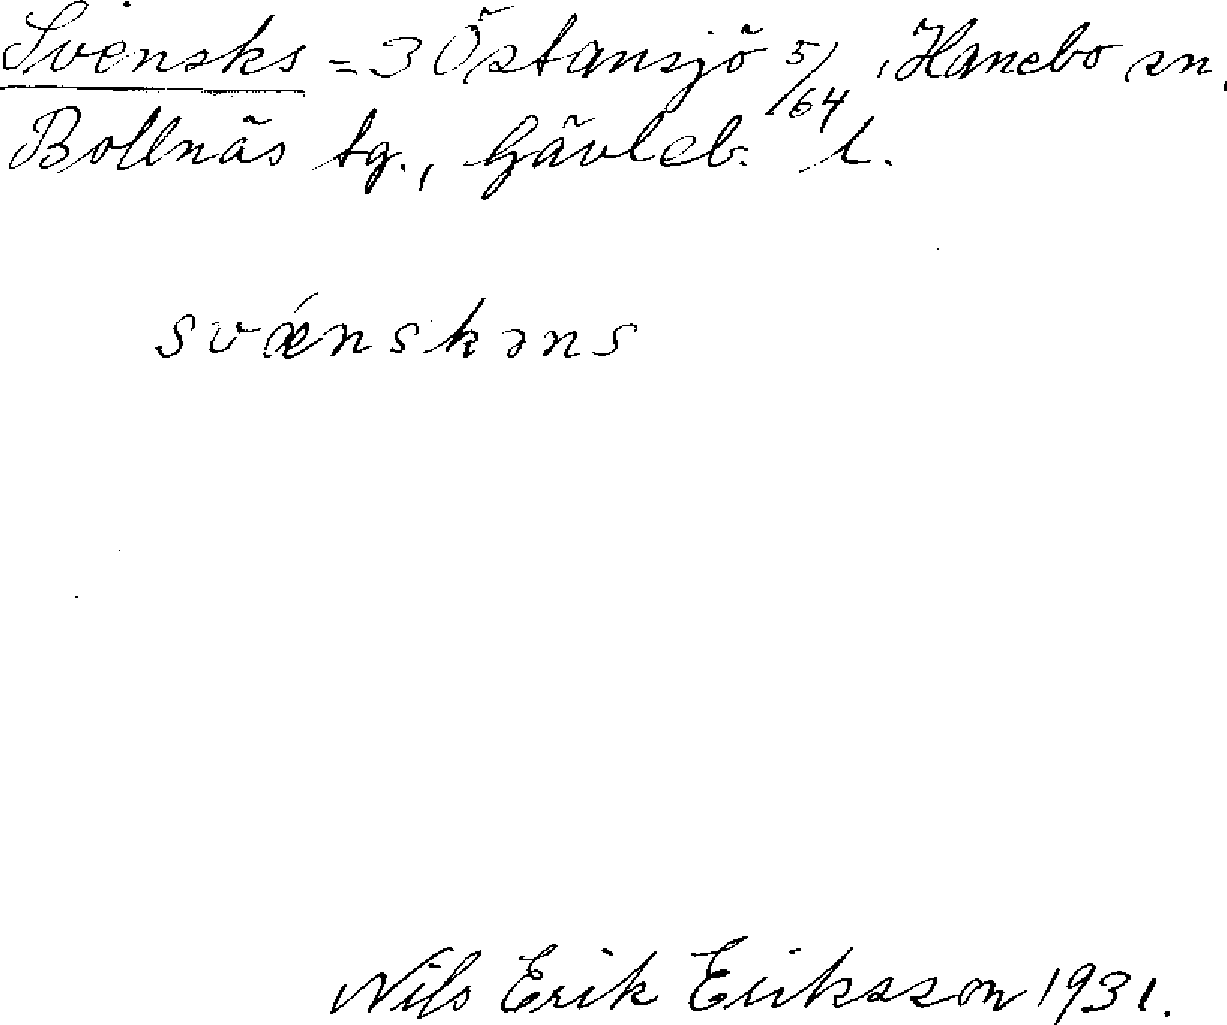 Svensks = 3 Östansjö 5/64, Hanebo sn,
Bollnäs tg., Gävleb. l.
svǽnskəns
Nils Erik Eriksson 1931.